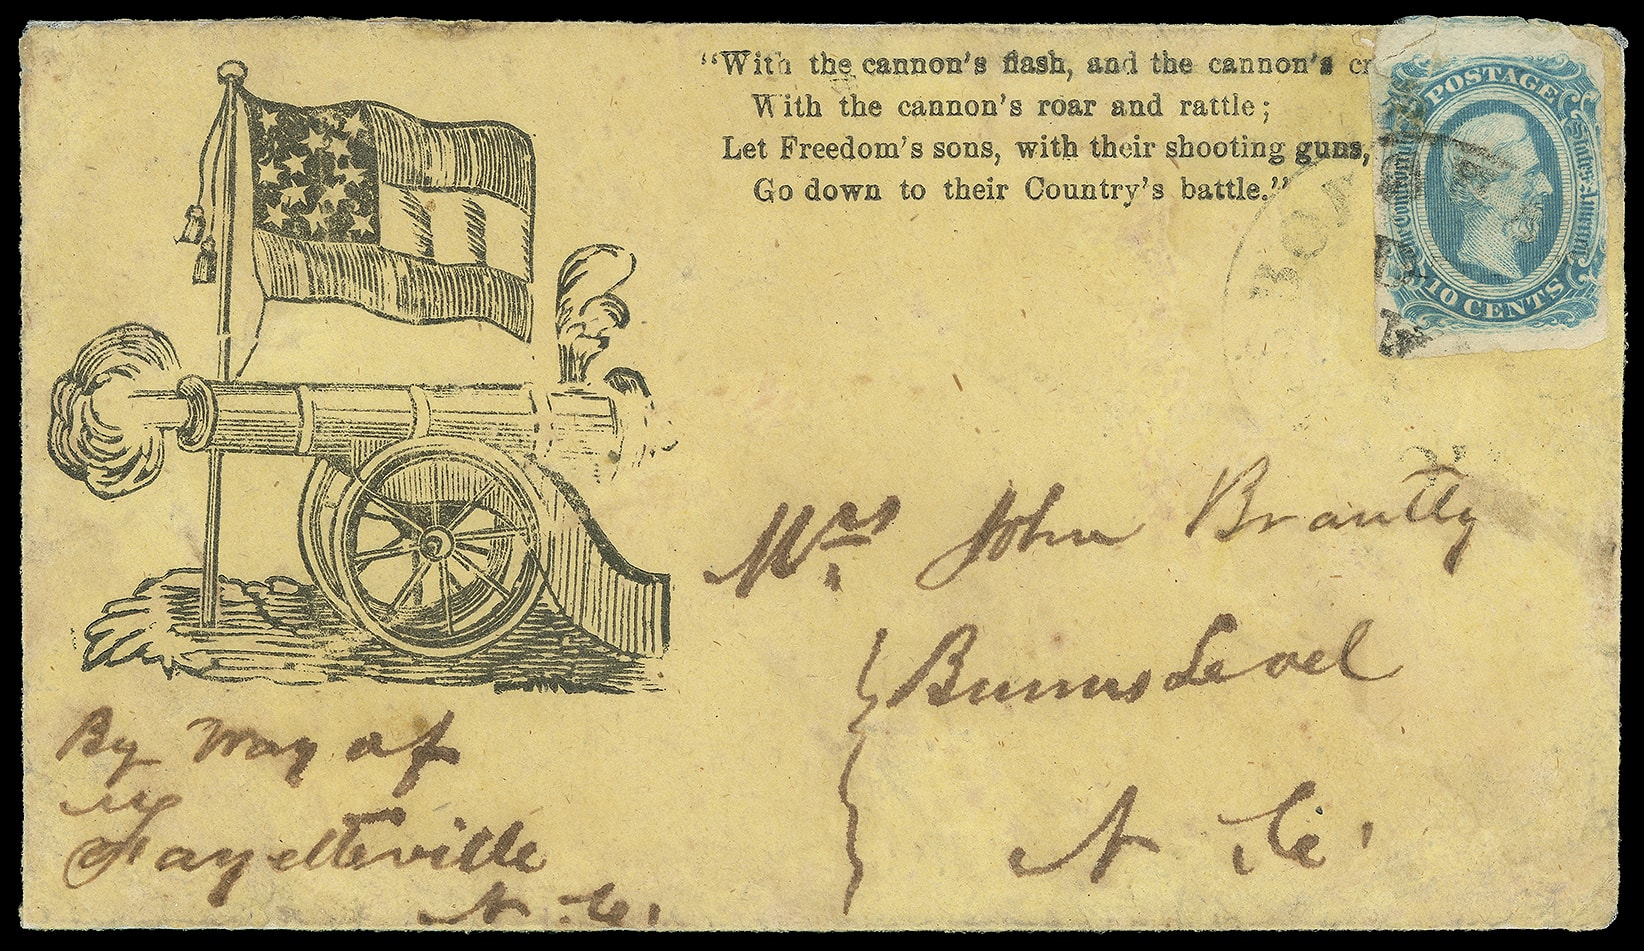 "With the cannon's flash, and the cannon's cr
With the cannon's roar and rattle;
Let Freedom's sons, with their shooting guns,
Go down to their Country's battle."
POSTAGE
The Confederate States of America
10 CENTS
Mrs John Brantly
Bunns Level
N. C.
By Way of
Fayetteville
N. C.